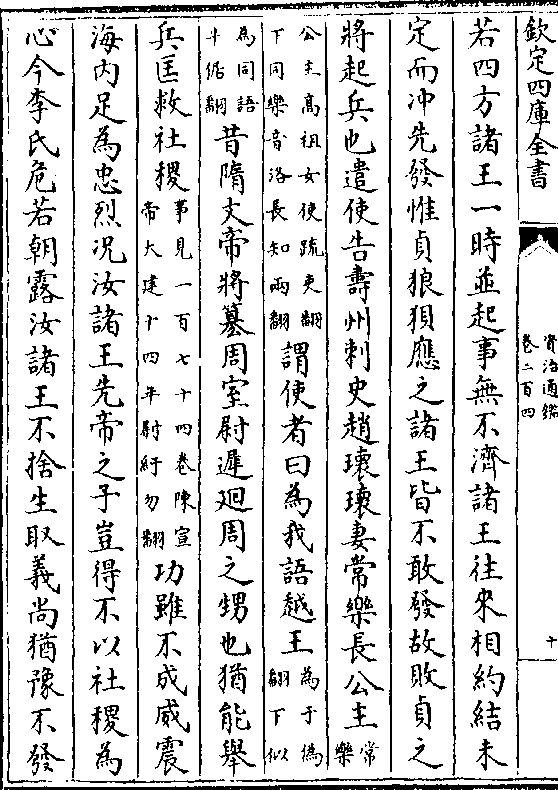 欽定四庫全書
資治通鑑
卷二百四
十
若四方諸王一時並起事無不濟諸王往來相約結未
定而冲先發惟貞狼狽應之諸王皆不敢發故敗貞之
將起兵也遣使告壽州刺史趙瓌瓌妻常樂長公主
常樂
公主髙祖女使疏吏翻
下同樂音洛長知兩翻
謂使者曰為我語越王
為于偽
翻下似
為同語
牛倨翻
昔隋文帝將簒周室尉遲迥周之甥也猶能舉
兵匡救社稷
事見一百七十四卷陳宣
帝大建十四年尉紆勿翻
功雖不成威震
海内足為忠烈况汝諸王先帝之子豈得不以社稷為
心今李氏危若朝露汝諸王不捨生取義尚猶豫不發